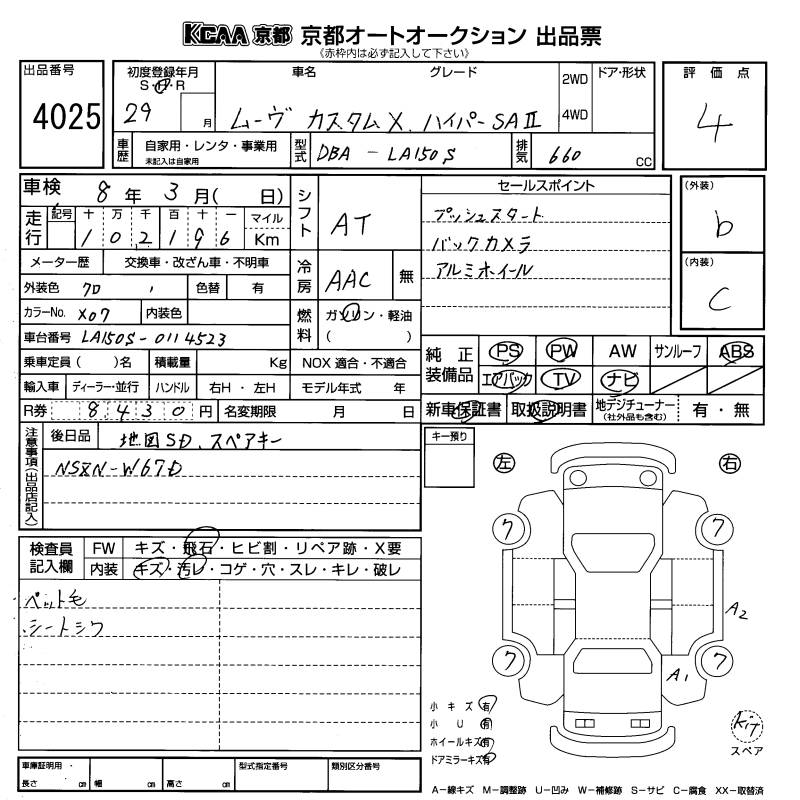 KCAA 京都 京都オートオークション 出品票
《赤枠内は必ず記入して下さい》
出品番号
4025
初度登録年月
S・H・R
29 月
車名 グレード
ムーヴ カスタムX ハイパーSAⅡ
2WD
4WD
ドア・形状
評価点
4
車歴
自家用・レンタ・事業用
未記入は自家用
型式
DBA-LA150S
排気
660 CC
車検 8年 3月( 日)
走行
記号 十 万 千 百 十 一 マイル
1 0 2 1 9 6 Km
メーター歴 交換車・改ざん車・不明車
外装色 クロ 色替 有
カラーNo. X07 内装色
車台番号 LA150S-0114523
乗車定員( )名 積載量 Kg
輸入車 ディーラー・並行 ハンドル 右H・左H
R券 8430円 名変期限 月 日
シフト
AT
冷房
AAC 無
燃料
ガソリン・軽油
( )
NOX 適合・不適合
モデル年式 年
セールスポイント
プッシュスタート
バックカメラ
アルミホイール
(外装)
b
(内装)
C
純正装備品
PS PW AW サンルーフ ABS
エアバック TV ナビ
新車保証書 取扱説明書 地デジチューナー(社外品も含む) 有・無
注意事項(出品店記入)
後日品 地図SD、スペアキー
NSZN-W67D
キー預り
検査員記入欄
FW キズ・飛石・ヒビ割・リペア跡・X要
内装 キズ・汚レ・コゲ・穴・スレ・キレ・破レ
ペット毛
シートシワ
左 右
ワ ワ
A2
ワ ワ
A1
小キズ 有
小U 有
ホイールキズ 有
ドアミラーキズ 有
kit
スペア
車庫証明用・
長さ cm 幅 cm 高さ cm
型式指定番号
類別区分番号
A-線キズ M-調整跡 U-凹み W-補修跡 S-サビ C-腐食 XX-取替済